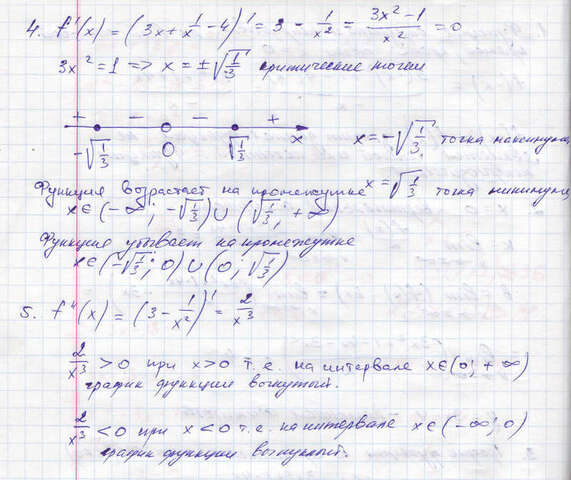 4. f'(x) = (3x + 1/x - 4)' = 3 - 1/x² = (3x² - 1)/x² = 0
3x² = 1 => x = ±√(1/3) критические точки
+ - - +
-√(1/3) 0 √(1/3) x
x = -√(1/3) точка максимума,
x = √(1/3) точка минимума,
Функция возрастает на промежутке
x∈(-∞; -√(1/3)) ∪ (√(1/3); +∞)
Функция убывает на промежутке
x∈(-√(1/3); 0) ∪ (0; √(1/3))
5. f''(x) = (3 - 1/x²)' = 2/x³
2/x³ > 0 при x > 0 т.е. на интервале x∈(0; +∞)
график функции вогнутый.
2/x³ < 0 при x < 0 т.е. на интервале x∈(-∞; 0)
график функции выпуклый.